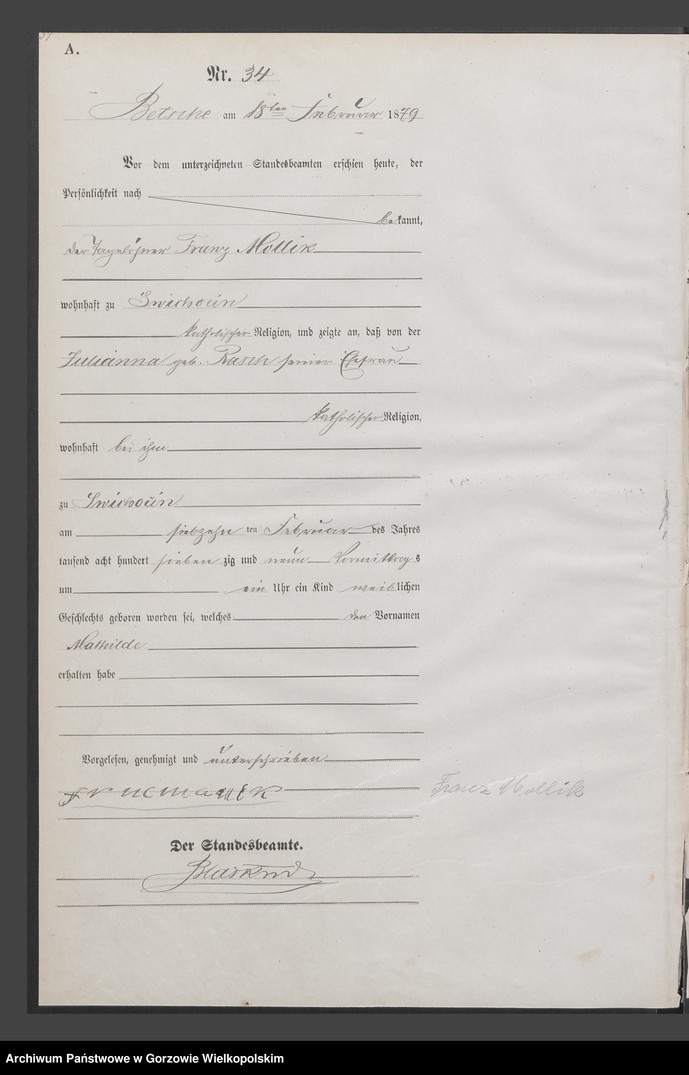 A.
Nr. 34
Betsche am 18ten Februar 1879
Vor dem unterzeichneten Standesbeamten erschien heute, der
Persönlichkeit nach
bekannt,
der Tagelöhner Franz Mollik
wohnhaft zu
katholischer Religion, und zeigte an, daß von der
Julianna geb. Rasch seiner Ehefrau
katholischer Religion,
wohnhaft bei ihm
zu
am siebzehnten Februar des Jahres
tausend acht hundert siebenzig und neun Vormittags
um ein Uhr ein Kind weiblichen
Geschlechts geboren worden sei, welches den Vornamen
Mathilde
erhalten habe
Vorgelesen, genehmigt und unterschrieben
Franz Mollik
Der Standesbeamte.
Archiwum Państwowe w Gorzowie Wielkopolskim